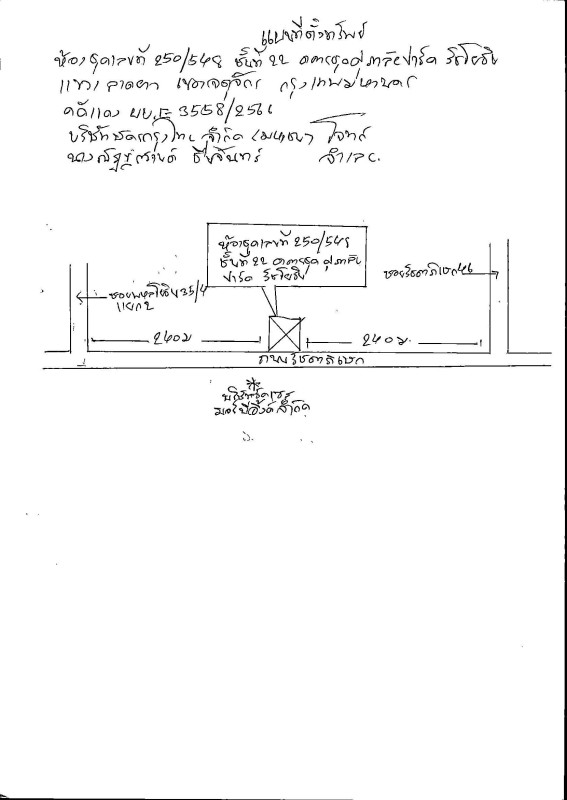 แผนที่ตั้งทรัพย์
ห้องชุดเลขที่ 250/548 ชั้นที่ 22 อาคารชุดศุภาลัยปาร์ค รัชโยธิน
แขวงลาดยาว เขตจตุจักร กรุงเทพมหานคร
คดีแดง ผบ.E 3558/256
บริษัท จำกัด (มหาชน) โจทก์
นาง จันทร์ จำเลย
ห้องชุดเลขที่ 250/548
ชั้นที่ 22 อาคารชุด ศุภาลัย
ปาร์ค รัชโยธิน
ซอยพหลโยธิน 35/4
แยก 2
ซอยรัชดาภิเษก 46
240 ม
240 ม.
ถนนรัชดาภิเษก
บริษัท
จำกัด